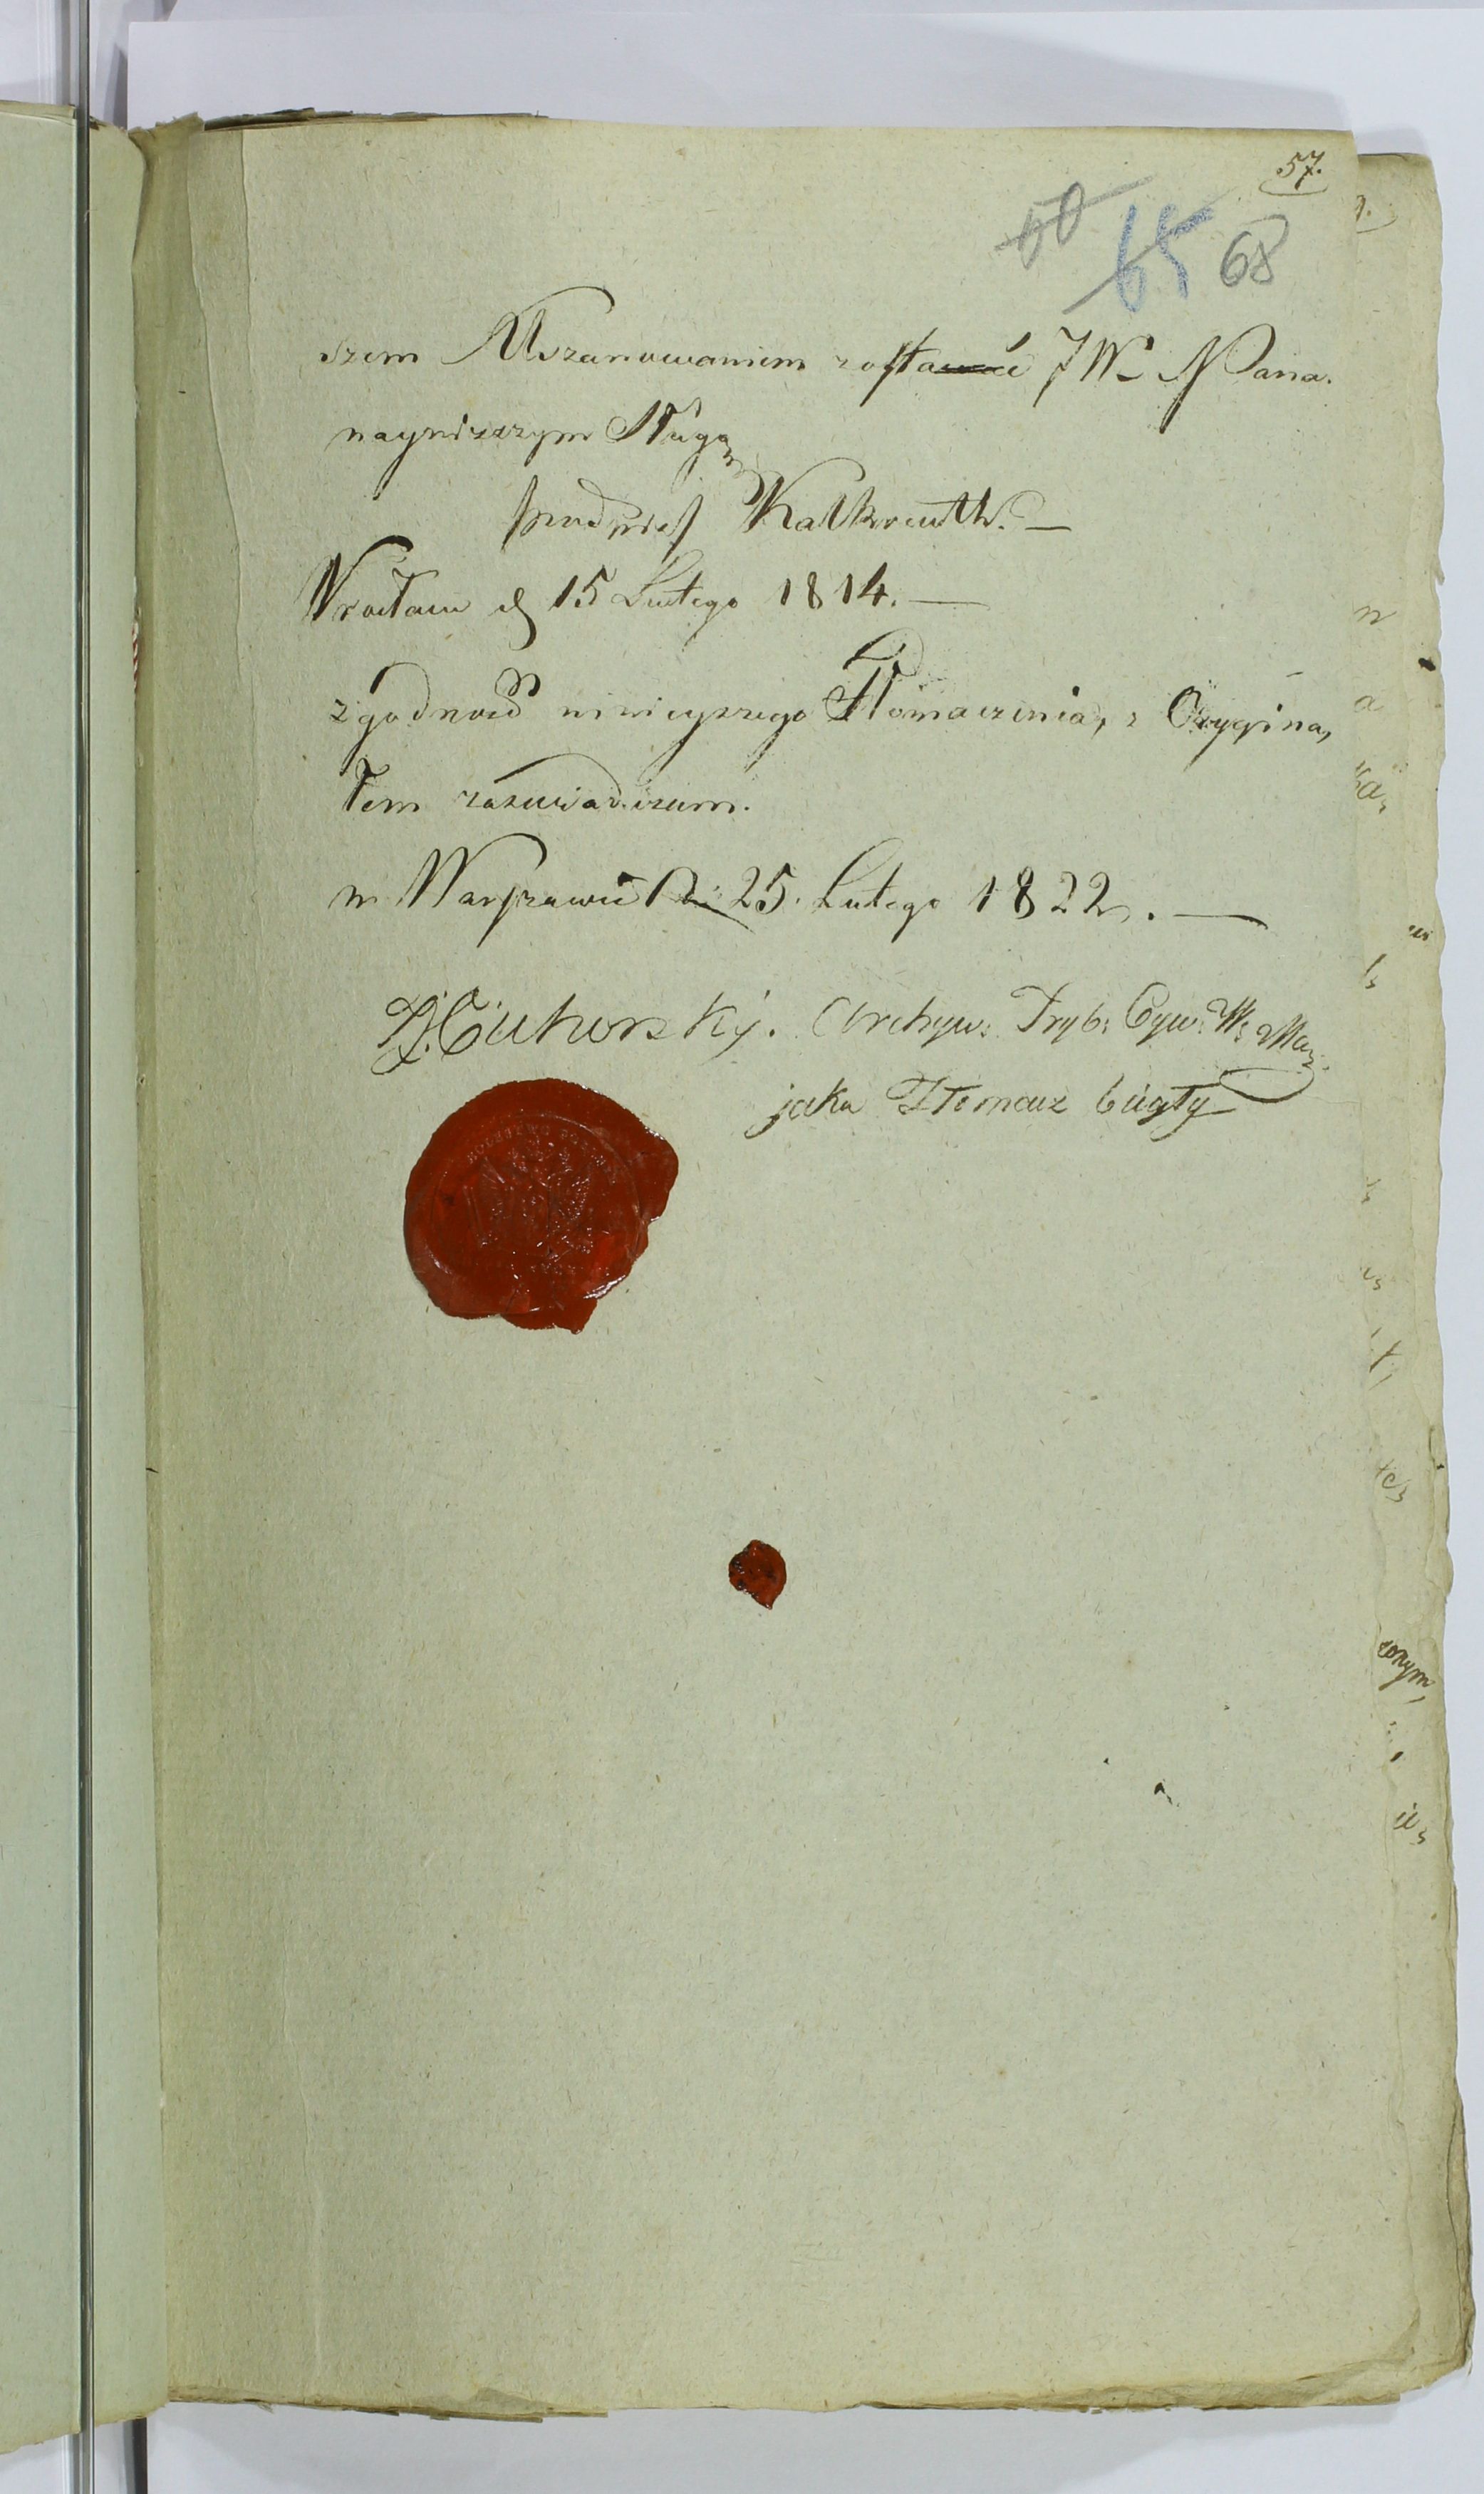 57.
60 65 68
szem Uszanowaniem zosta̶w̶ać JW Pana.
nayniższym Sługą
podpis Kalkreuth. —
Wrocław d 15 Lutego 1814. —
zgodność ninieyszego Tłomaczenia, z Orygina,
łem zaświadczam.
w Warszawie Dn: 25. Lutego 1822. —
Cichorski. Archyw: Tryb: Cyw: W: Maz:
jako Tłomacz biegły